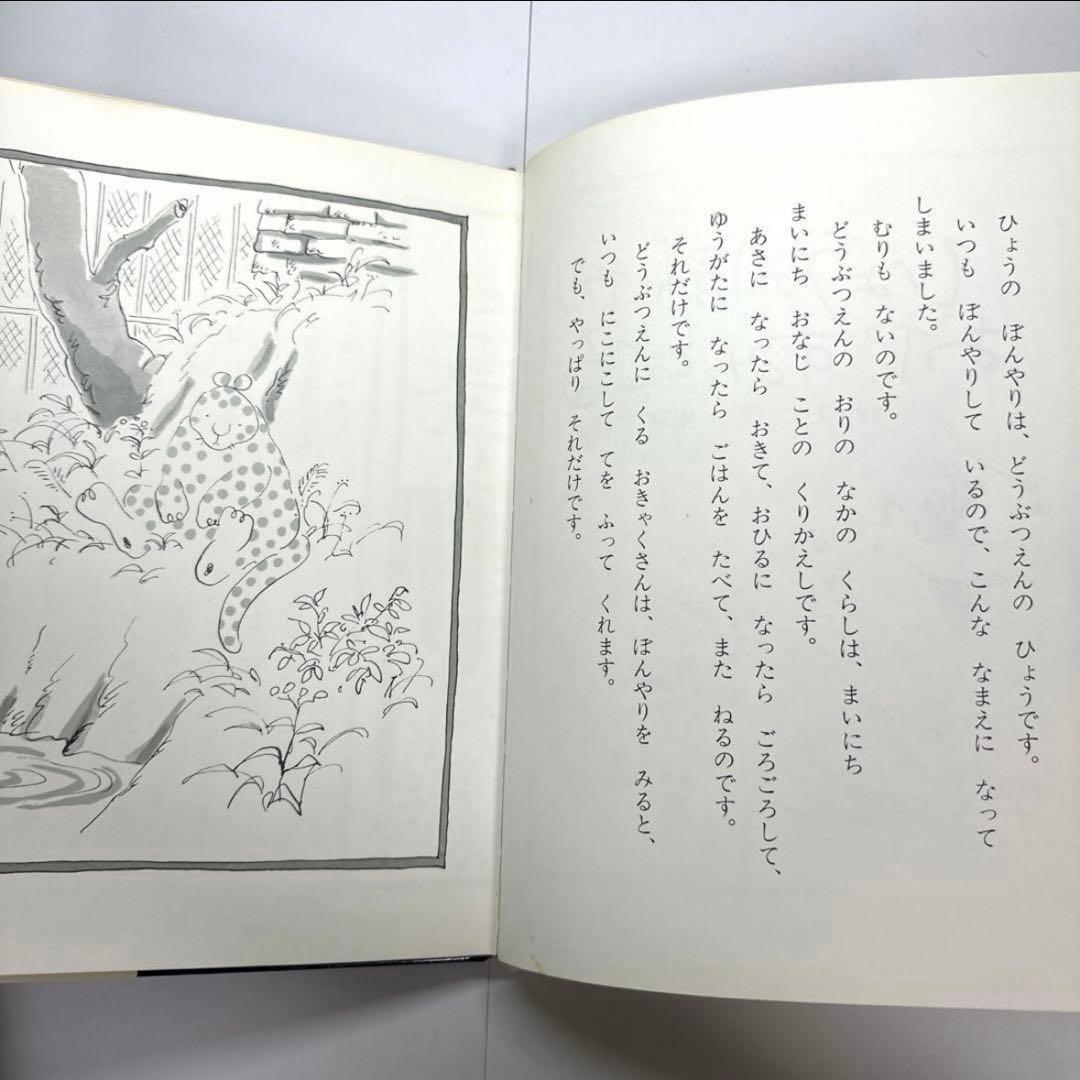 ひょうの　ぼんやりは、どうぶつえんの　ひょうです。
いつも　ぼんやりして　いるので、こんな　なまえに　なって
しまいました。
むりも　ないのです。
どうぶつえんの　おりの　なかの　くらしは、まいにち
まいにち　おなじ　ことの　くりかえしです。
あさに　なったら　おきて、おひるに　なったら　ごろごろして、
ゆうがたに　なったら　ごはんを　たべて、また　ねるのです。
それだけです。
どうぶつえんに　くる　おきゃくさんは、ぼんやりを　みると、
いつも　にこにこして　てを　ふって　くれます。
でも、やっぱり　それだけです。